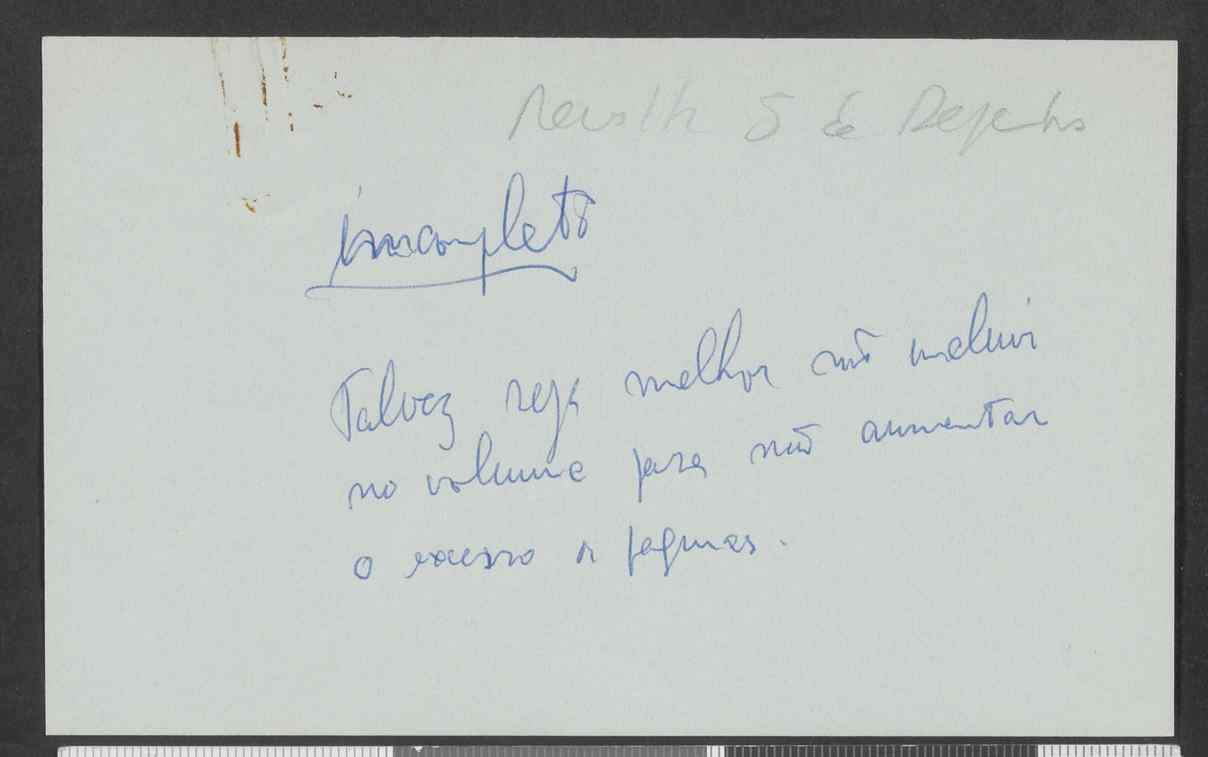 5 de
incompleto
Talvez seja melhor não incluir
no volume para não aumentar
o excesso de paginas.